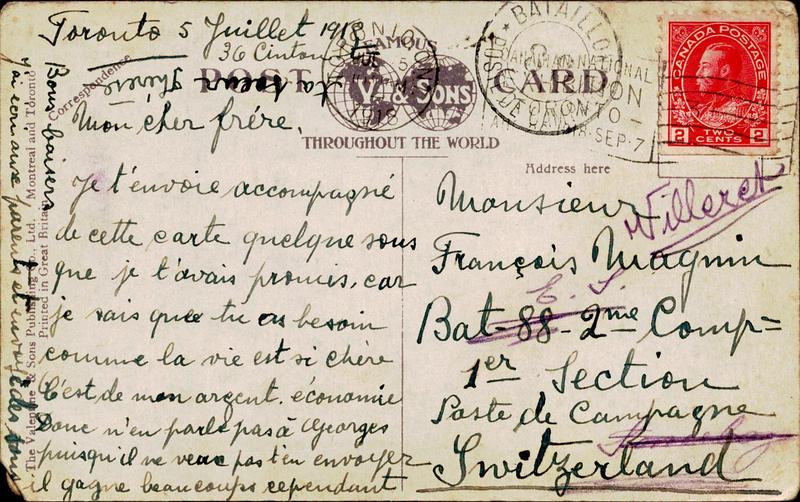 Toronto 5 Juillet 1918
36 Cinton
FAMOUS
POST CARD
V. & SONS
THROUGHOUT THE WORLD
Correspondence
Address here
TORONTO ONT
1918
BATAILLON
CANADIAN NATIONAL
TORONTO
SEP. 7
CANADA POSTAGE
2 TWO CENTS 2
ta soeur Thérèse
Bons baisers
j'ai écrit aux parents et envoyé des sous
The Valentine & Sons Publishing Co., Ltd. Montreal and Toronto
Printed in Great Britain
Mon cher frére,
Je t'envoie accompagné
de cette carte quelque sous
que je t'avais promis, car
je sais que tu es besoin
comme la vie est si chère
C'est de mon argent économie
Donc n'en parle pas à Georges
puisqu'il ne veux pas t'en envoyer
il gagne beaucoups cependant
Monsieur
Villeret
François Magnin
Bat-88-2me Comp=
1er Section
Poste de Campagne
Switzerland